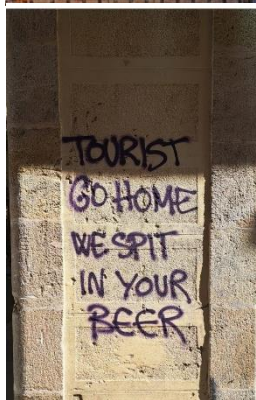 TOURIST
GO HOME
WE SPIT
IN YOUR
BEER